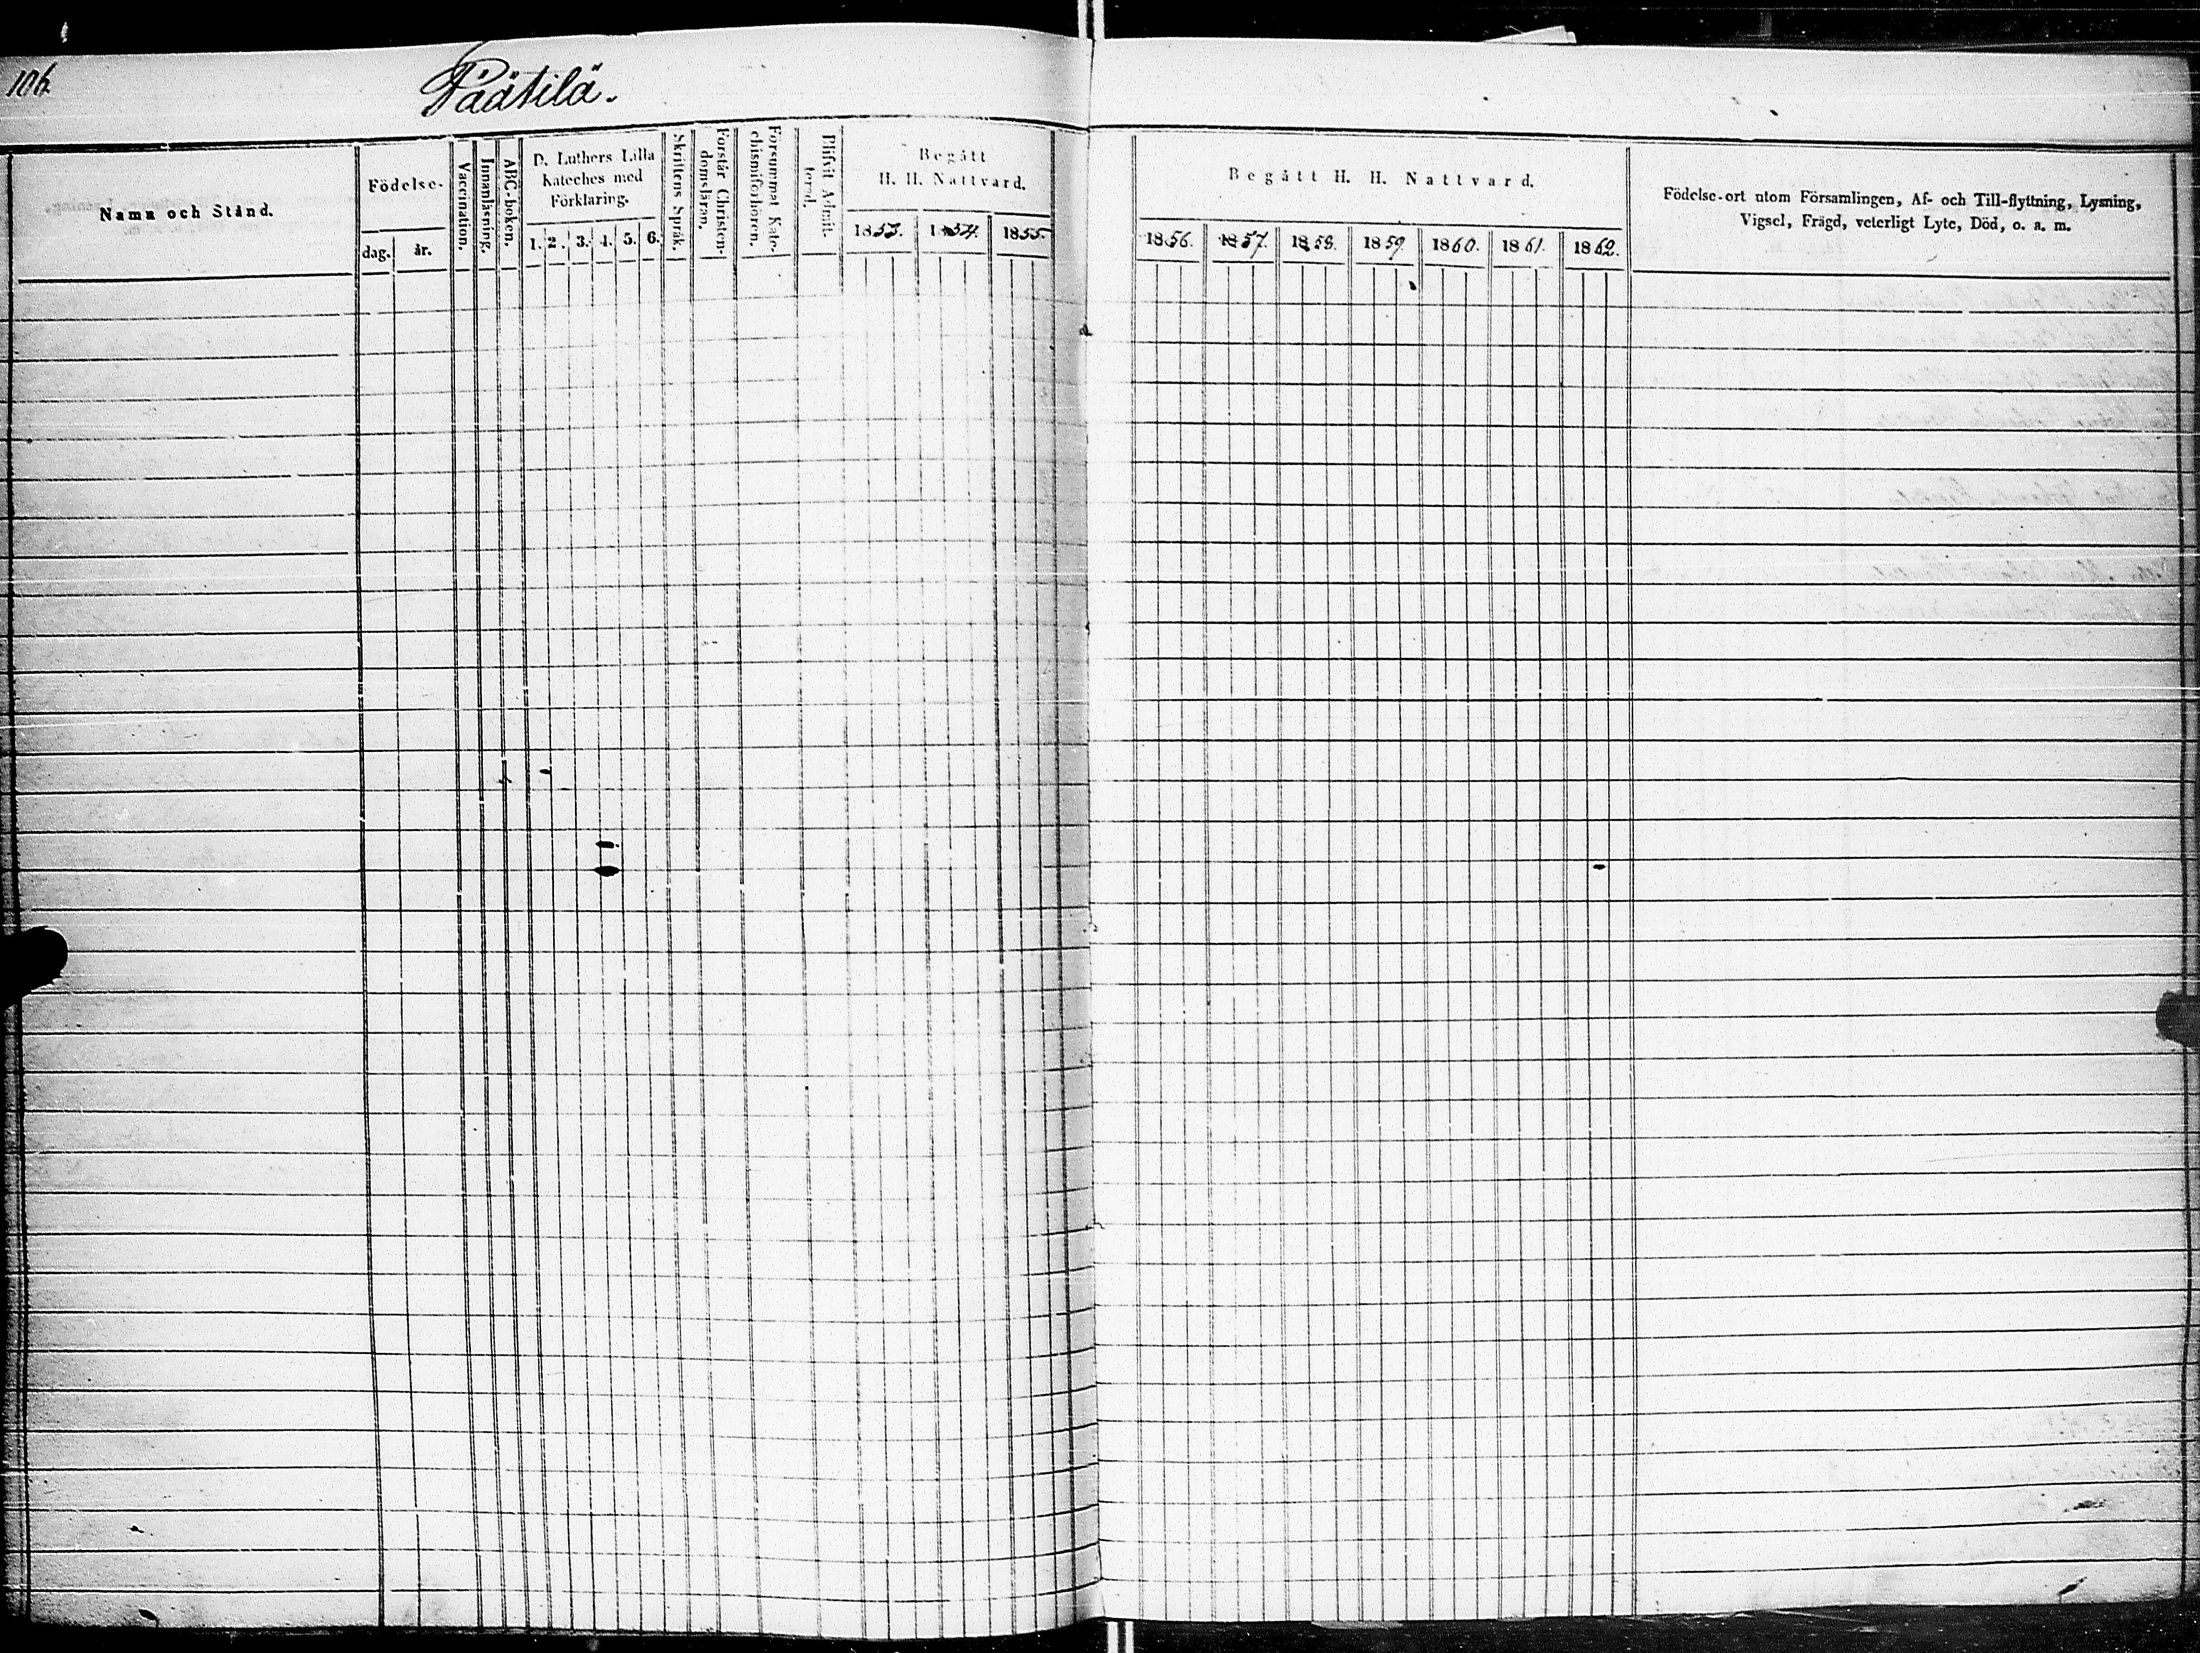 106.
Päätilä.
Namn och Stånd.
Födelse-
dag. år.
Vaccination.
Innanläsning.
ABC-boken.
D. Luthers Lilla
Kateches med
Förklaring.
1. 2. 3. 4. 5. 6.
Skriftens Språk.
Förstår Christen-
domsläran.
Försummat Kate-
chismiförhören.
Blifvit Admit-
terad.
Begått
H. H. Nattvard.
1853. 1854. 1855.
Begått H. H. Nattvard.
1856. 1857. 1858. 1859. 1860. 1861. 1862.
Födelse-ort utom Församlingen, Af- och Till-flyttning, Lysning,
Vigsel, Frägd, veterligt Lyte, Död, o. a. m.